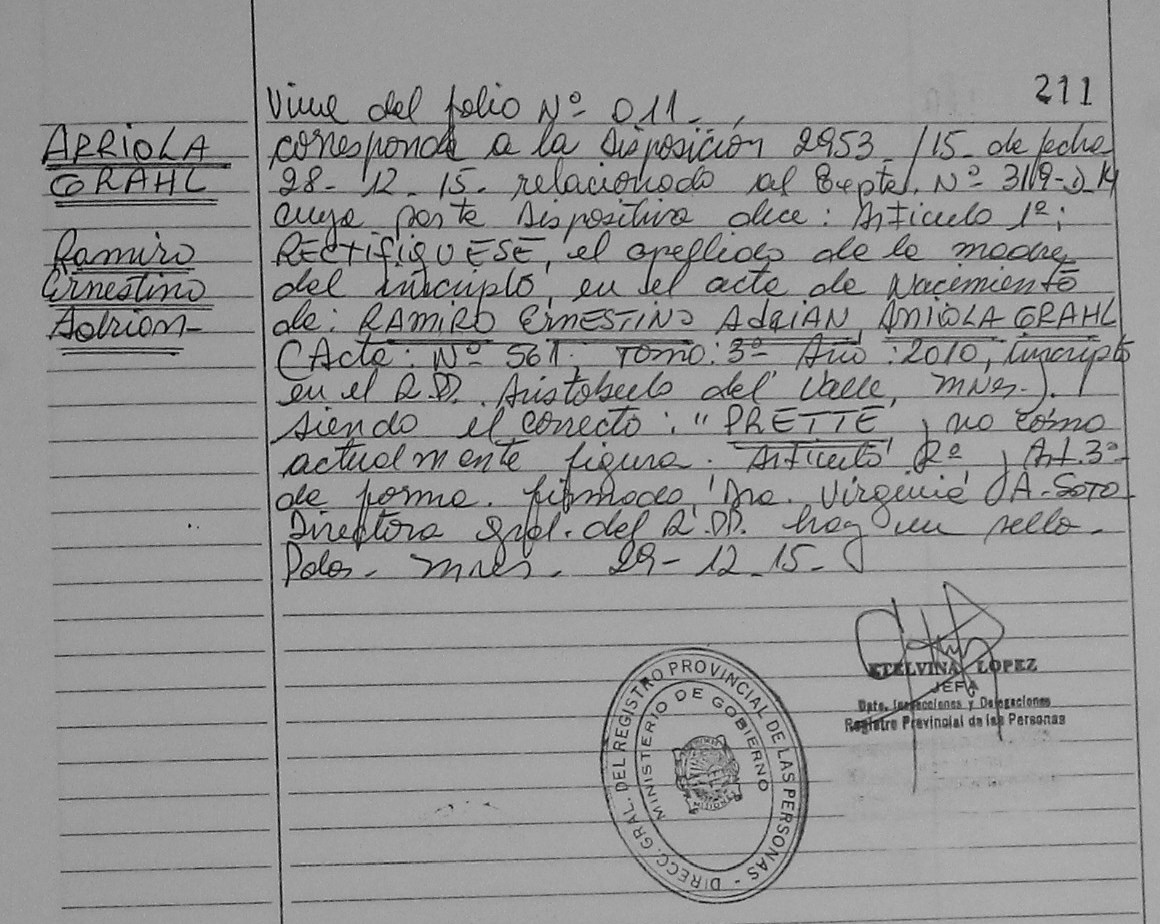 211
Viene del folio Nº 011-
ARRIOLA
GRAHL
Ramiro
Ernestino
Adrian-
corresponde a la disposición 2953-/15- de fecha
28-12-15- relacionado al Expte. Nº 3119-
cuya parte dispositiva dice: Articulo 1º;
RECTIFIQUESE, el apellido de la madre
del inscripto, en el acta de Nacimiento
de: RAMIRO ERNESTINO ADRIÁN, ARRIOLA GRAHL
(Acta: Nº 561. Tomo: 3º Año: 2010, inscripto
en el R.PP. Aristobulo del Valle, mnes.)
siendo el correcto: "PRETTE", no como
actualmente figura. Articulo 2º, Art. 3º-
de forma. firmado, Dra. Virginia A. SOTO-
Directora Gral. del R.PP. hay un sello.
Pdas. mnes. 29-12-15-
ETELVINA LOPEZ
JEFA
Dpto. Inspecciones y Delegaciones
Registro Provincial de las Personas
DIRECC. GRAL. DEL REGISTRO PROVINCIAL DE LAS PERSONAS -
MINISTERIO DE GOBIERNO
MISIONES